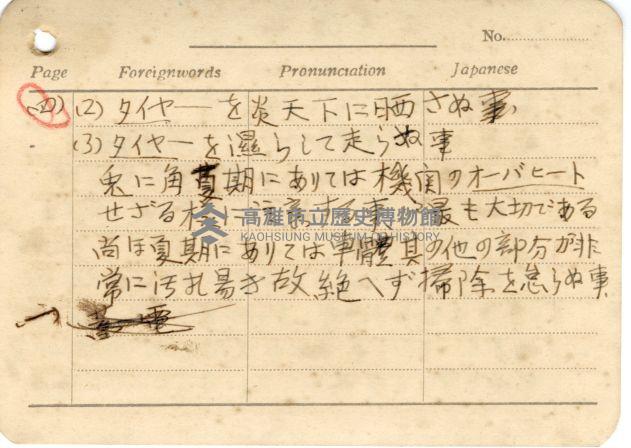 No.
Page Foreignwords Pronunciation Japanese
(2) タイヤーを炎天下に晒さぬ事
(3) タイヤーを濕らして走らぬ事
兎に角夏期にありては機関のオーバヒート
せざる様に注意する事が最も大切である
高雄市立歷史博物館
KAOHSIUNG MUSEUM OF HISTORY
尚ほ夏期にありては車體其の他の部分が非
常に汚れ易き故絶へず掃除を怠らぬ事